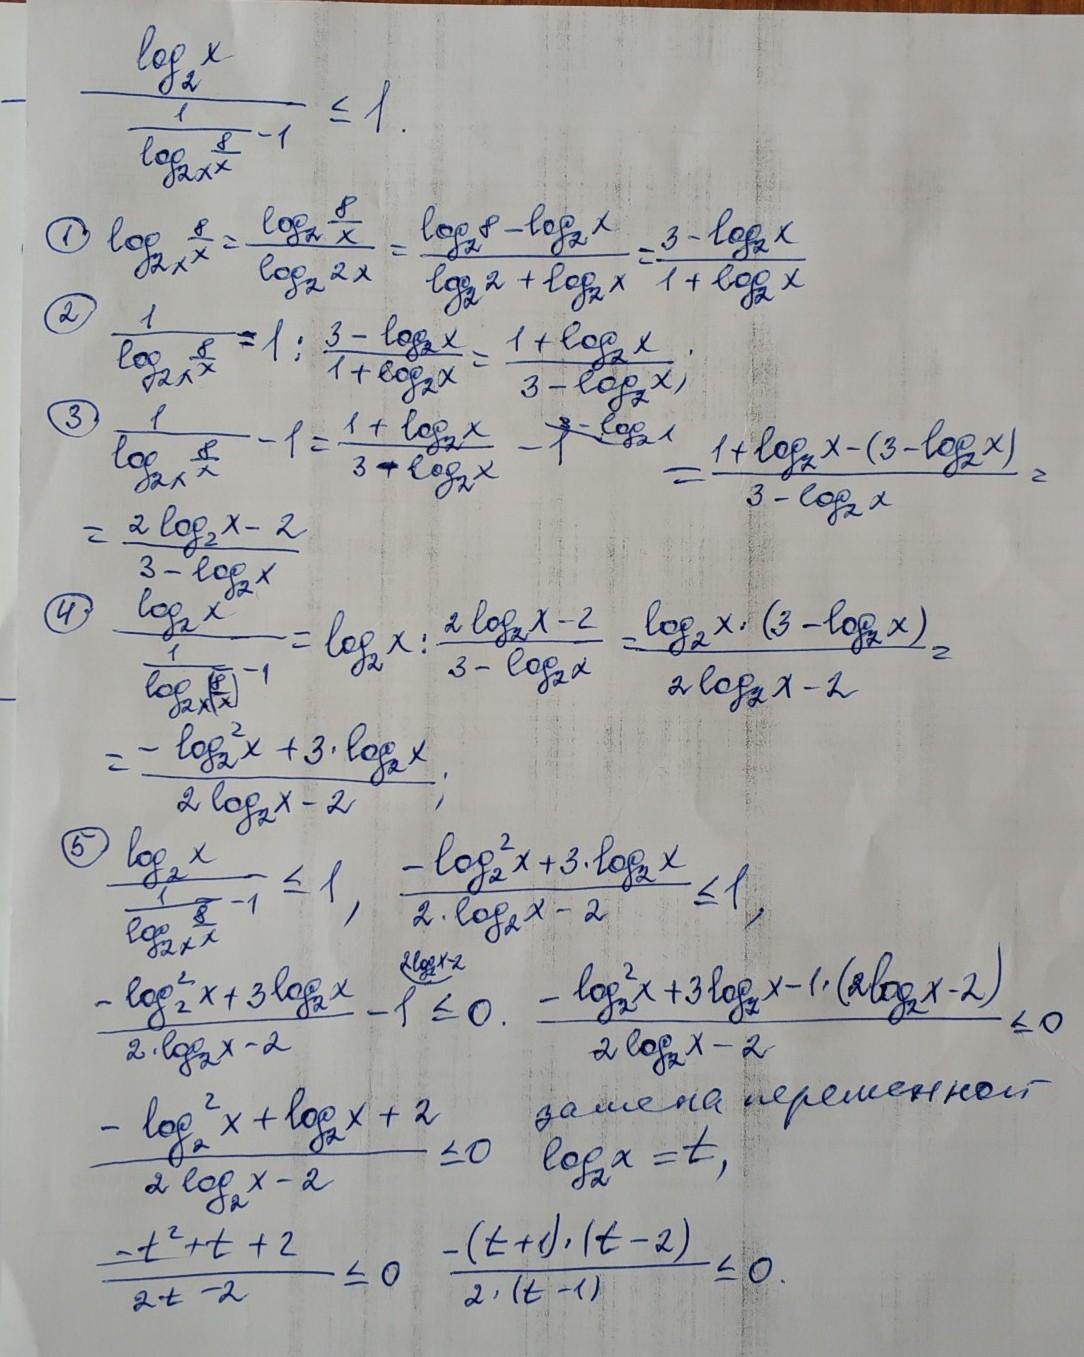 log₂x / (1/(log₂ₓ 8/x) − 1) ≤ 1.
① log₂ₓ 8/x = (log₂ 8/x)/(log₂ 2x) = (log₂8 − log₂x)/(log₂2 + log₂x) = (3 − log₂x)/(1 + log₂x)
② 1/(log₂ₓ 8/x) = 1 : (3 − log₂x)/(1 + log₂x) = (1 + log₂x)/(3 − log₂x);
③ 1/(log₂ₓ 8/x) − 1 = (1 + log₂x)/(3 − log₂x) − 1 = (1 + log₂x − (3 − log₂x))/(3 − log₂x) =
= (2 log₂x − 2)/(3 − log₂x)
④ log₂x / (1/(log₂ₓ(8/x)) − 1) = log₂x : (2 log₂x − 2)/(3 − log₂x) = (log₂x · (3 − log₂x))/(2 log₂x − 2) =
= (− log₂²x + 3 · log₂x)/(2 log₂x − 2);
⑤ log₂x / (1/(log₂ₓ 8/x) − 1) ≤ 1, (− log₂²x + 3 · log₂x)/(2 · log₂x − 2) ≤ 1,
(− log₂²x + 3 log₂x)/(2 · log₂x − 2) − 1 ≤ 0. 2log₂x−2 (− log₂²x + 3 log₂x − 1 · (2 log₂x − 2))/(2 log₂x − 2) ≤ 0
(− log₂²x + log₂x + 2)/(2 log₂x − 2) ≤ 0 замена переменной
log₂x = t,
(−t² + t + 2)/(2t − 2) ≤ 0 (−(t+1) · (t − 2))/(2 · (t − 1)) ≤ 0.